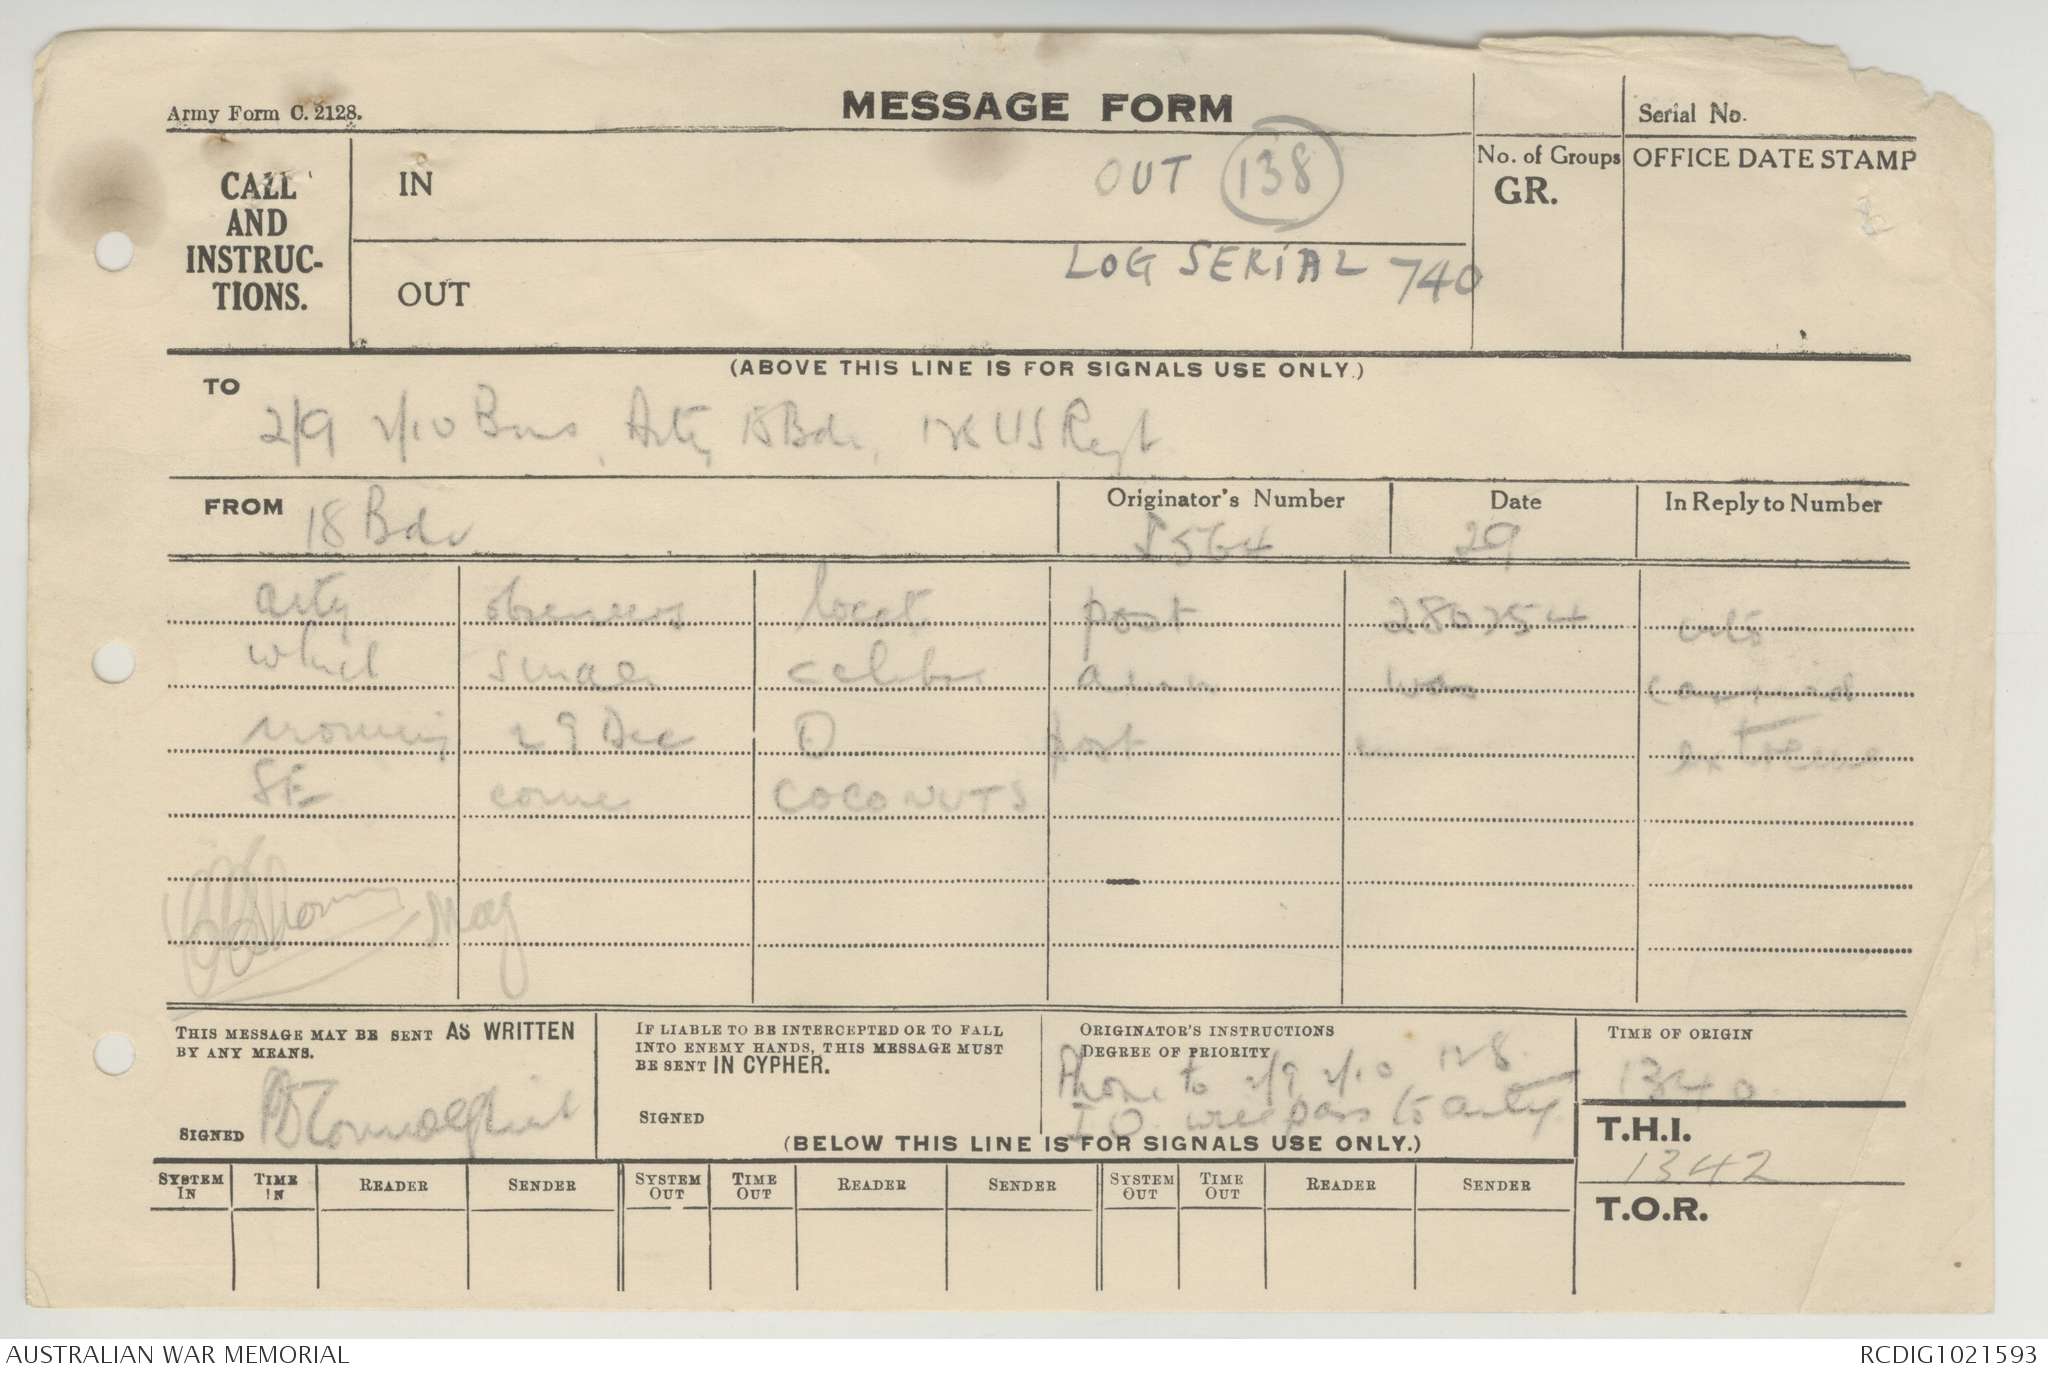 Army Form C. 2128.
MESSAGE FORM
Serial No.
CALL AND INSTRUC-TIONS.
IN
OUT 138
No. of Groups
GR.
OFFICE DATE STAMP
OUT
LOG SERIAL 740
(ABOVE THIS LINE IS FOR SIGNALS USE ONLY.)
TO
2/9 2/10 Bns, Arty, Bde, US Regt
FROM 18 Bde
Originator's Number
564
Date
29
In Reply to Number
arty observers locate post 280254 into
which small calibre was carried
morning 29 Dec O post extreme
SE corner COCONUTS
Maj
THIS MESSAGE MAY BE SENT AS WRITTEN
BY ANY MEANS.
SIGNED
IF LIABLE TO BE INTERCEPTED OR TO FALL
INTO ENEMY HANDS, THIS MESSAGE MUST
BE SENT IN CYPHER.
SIGNED
ORIGINATOR'S INSTRUCTIONS
DEGREE OF PRIORITY
Phone to 2/9 2/10
I.O. will pass to arty
TIME OF ORIGIN
1340
T.H.I.
1342
T.O.R.
(BELOW THIS LINE IS FOR SIGNALS USE ONLY.)
SYSTEM IN TIME IN READER SENDER SYSTEM OUT TIME OUT READER SENDER SYSTEM OUT TIME OUT READER SENDER
AUSTRALIAN WAR MEMORIAL
RCDIG1021593